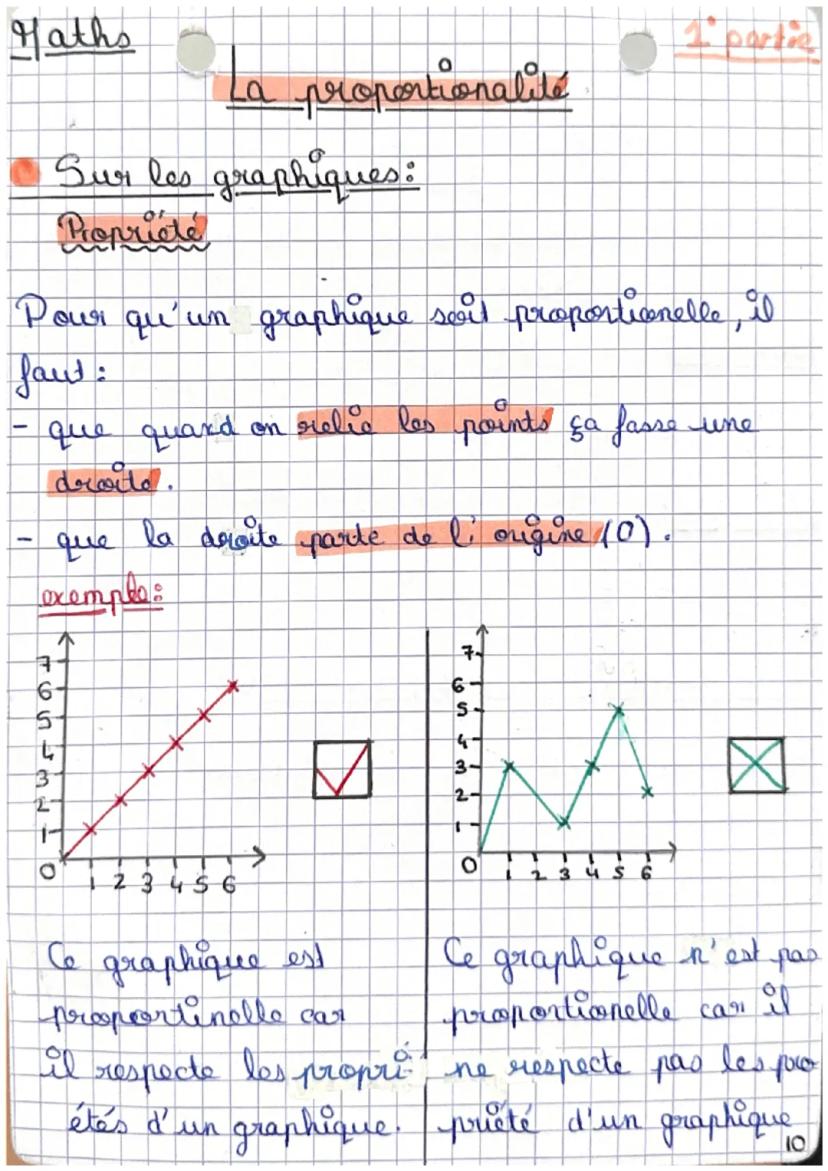 Maths
1° partie
La proportionalité
Sur les graphiques:
Propriété
Pour qu'un graphique soit proportionelle, il
faut:
- que quand on relie les points ça fasse une
droite.
- que la droite parte de l'origine (0).
exemple:
7
6
5
4
3
2
1
0
1 2 3 4 5 6
7
6
5
4
3
2
1
0
1 2 3 4 5 6
Ce graphique est
proportinelle car
il respecte les propri-
étés d'un graphique.
Ce graphique n'est pas
proportionelle car il
ne respecte pas les pro
priété d'un graphique
10